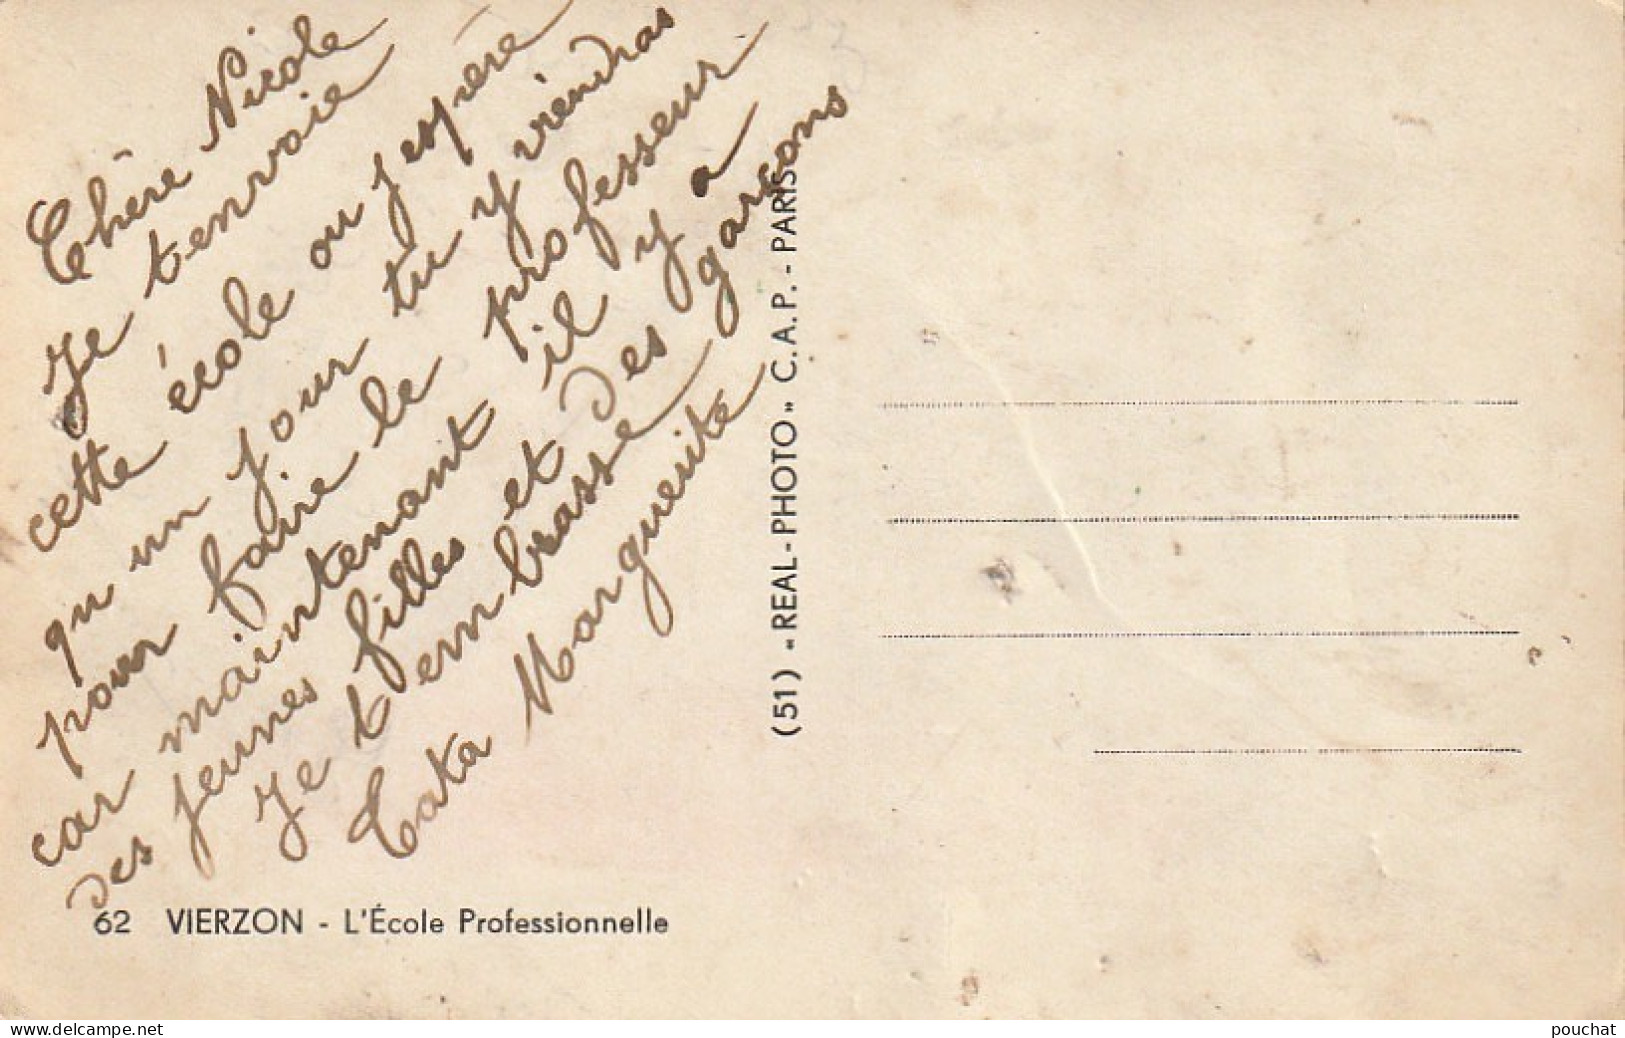 Chère Nicole
Je tenvoie
cette école ou j espère
qu un jour tu y viendras
pour faire le professeur
car maintenant il y a
des jeunes filles et des garçons
Je t embrasse
Tata Marguerite
62 VIERZON - L'École Professionnelle
(51) « REAL-PHOTO » C.A.P. - PARIS
www.delcampe.net
pouchat